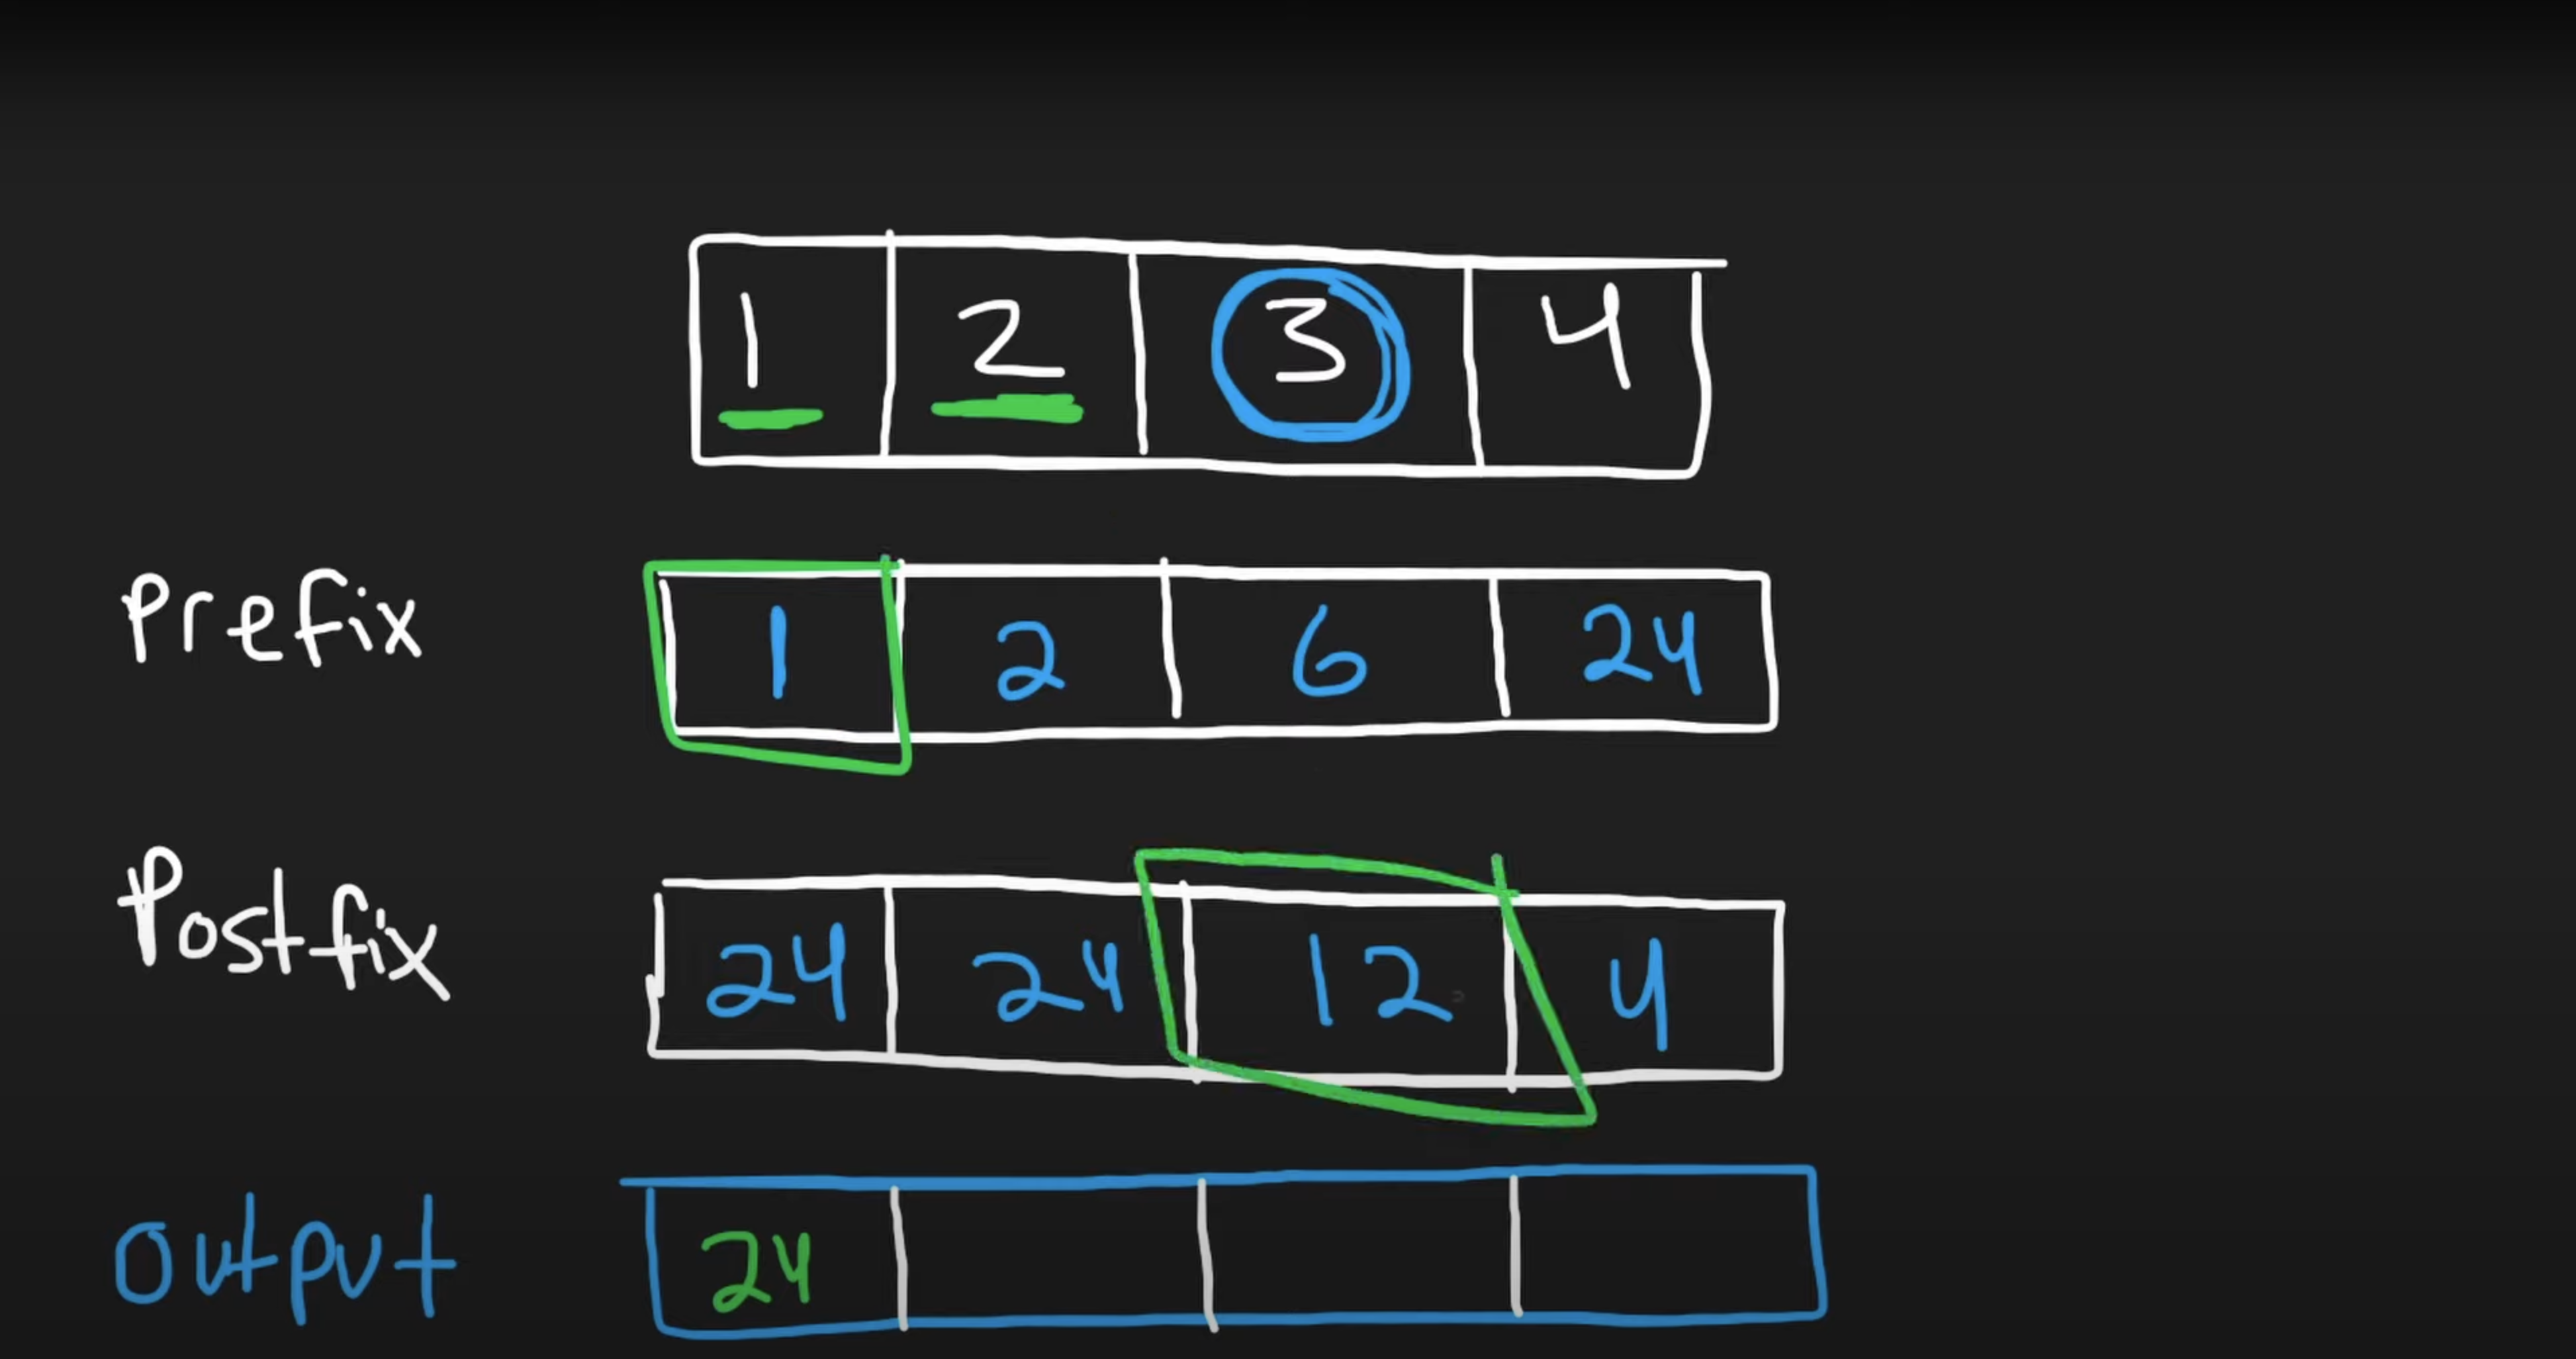 1 2 3 4
Prefix 1 2 6 24
Postfix 24 24 12 4
output 24